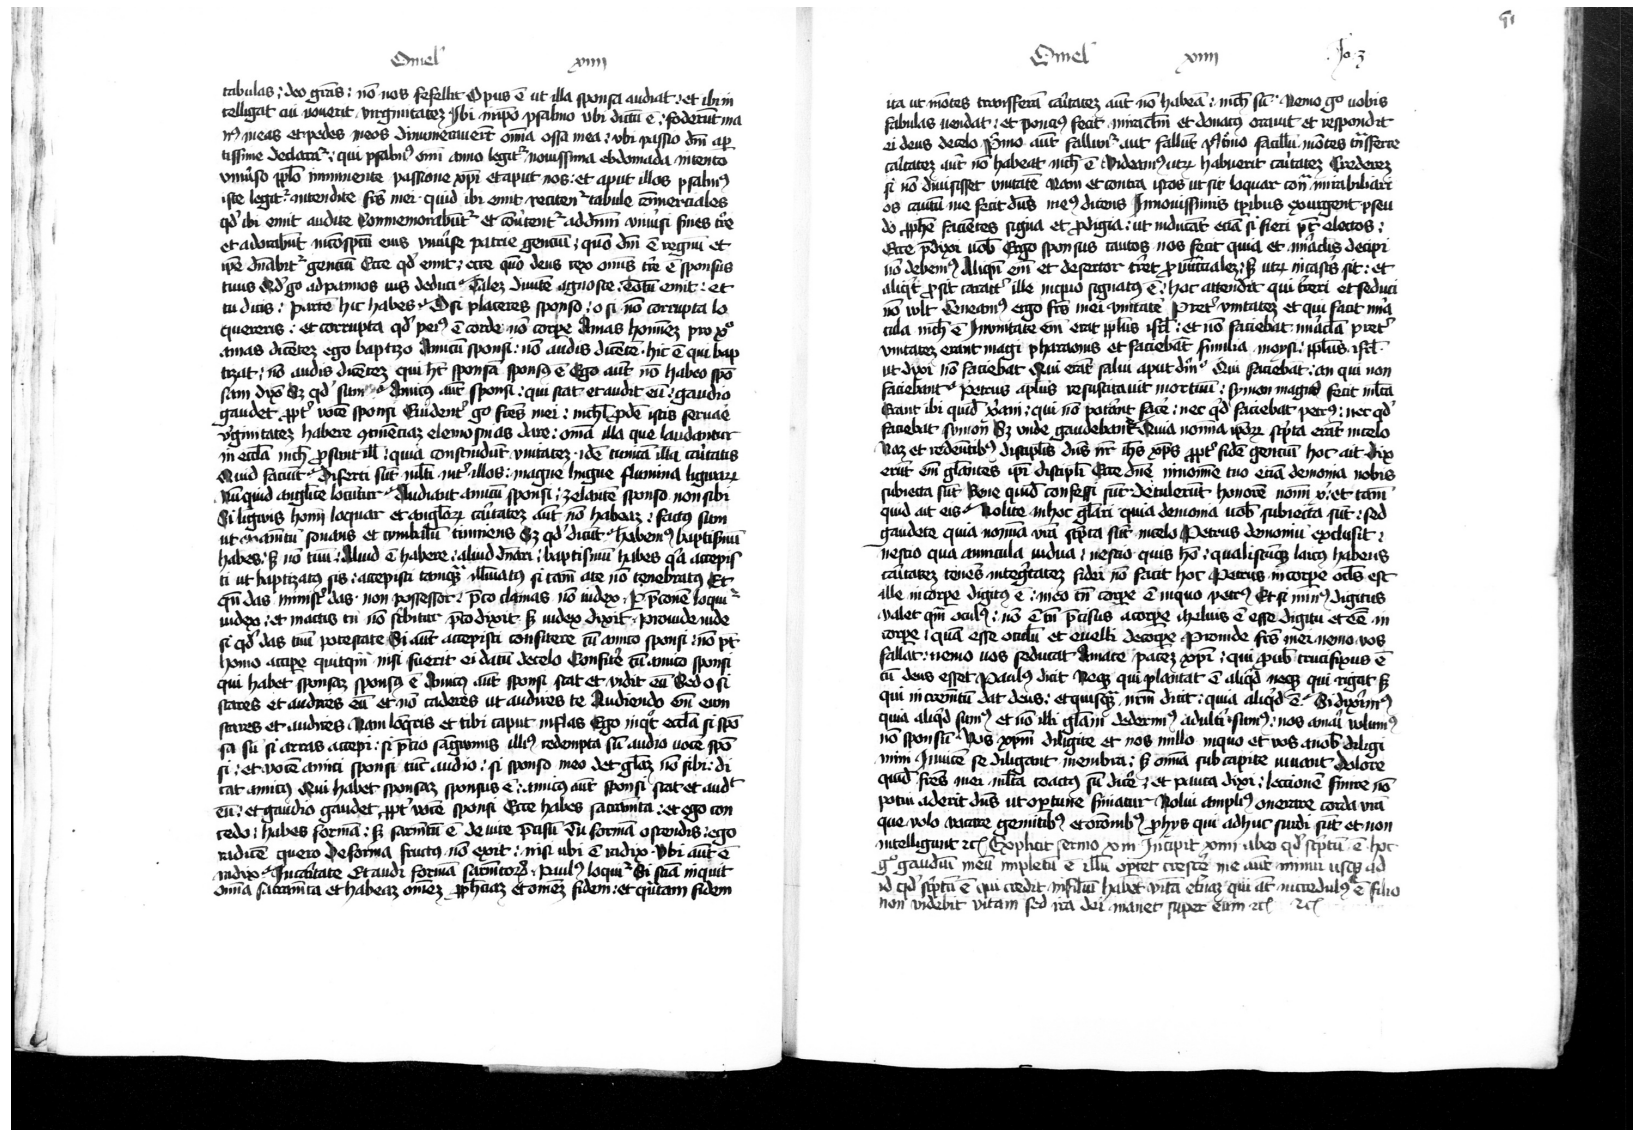 Omel xiiii
tabulas ; deo gr̄as : nō nos fefellit Opus ē ut illa sponsa audiat : et ibi in
telligat cui vouerit virginitatez Ibi in ip̄o psalmo vbi dictū ē ; foderūt ma
nꝰ meas et pedes meos dinumerauerūt om̄ia ossa mea ; vbi passio dn̄i ap
tissime declarat᷑ ; qui psalmꝰ om̄i anno legit᷑ nouissima ebdomada intento
vniu̇so pplo imminente passione xp̄i et aput nos : et aput illos psalmꝰ
iste legit᷑ intendite frēs mei quid ibi emit reciten᷑ tabule cōmerciales
qd̓ ibi emit audite Conmemorabūt᷑ et cōu̇tent᷑ ad dn̄m vniu̇si fines tr̄e
et adorabūt in cōspctu eius vniu̇se patrie genciū ; quō dn̄i ē regnū et
ip̄e dn̄abit᷑ gentiū Ecce qd̓ emit ; ecce quō deus rex om̄is tr̄e ē sponsus
tuus Qd̓ go ad pannos uis deduci Talez diuite agnosce totū emit : et
tu dicis : parte hic habes O si placeres sponso ; o si nō corrupta lo
quereris : et corrupta qd̓ peiꝰ ē corde nō corpe Amas hominez pro xº
amas dicētez ego baptizo Amicū sponsi : nō audis dicētē hic ē qui bap
tizat ; nō audis dicētez qui ht̄ sponsā sponsꝰ ē Ego aut̄ nō habeo spō
sam dixō Sz qd̓ sum Amicus aut̄ sponsi : qui stat et audit eū : gaudio
gaudet ppt̓ vocē sponsi Euident̓ go frēs mei : nichil pde istis seruare
v̓ginitatez habere qtinēciaz elemosinas dare : om̄ia illa que laudantur
in ecclīa nich̄ psunt ill̄ : quia conscindūt vnitatez idē tunicā illā ca̓itatis
Quid faciūt Diserti sūt m̄lti int̓ illos : magne lingue flumina linguarꝝ
Nūquid anglice locūtur Audiant amicū sponsi ; zelantē sponso non sibi
Si liguis hom̄ loquar et anglorꝝ ca̓itatez aut̄ nō habeaz : factus sum
ut eramētū sonans et cymbalū tinniens Sz qd̓ dicūt habemꝰ baptismū
habes s̄ nō tuū : Aliud ē habere : aliud dn̄ari : baptismū habes qa accepis
ti ut baptizatꝰ sis : accepisti tamqȝ illūinatꝰ si tam̄ a te nō tenebratꝰ Et
qn̄ das minist̓ das non possessor : p̄co clamas nō iudex . Per p̄conē loqui᷑
iudex ; et in actis tn̄ nō sc̄bitur p̄co dixit s̄ iudex dixit . prouide vide
si qd̓ das tuū potestate Si aut̄ accepisti confitere cū amico sponsi : nō pt̄
homo accipe quitqm̄ nisi fuerit ei datū de celo Confitēr cū amico sponsi
qui habet sponsaz sponsꝰ ē Amicꝰ aut̄ sponsi stat et vidit eū Sed o si
stares et audires eū et nō caderes ut audires te Audiendo em̄ eum
stares et audires Nam loq̄ris et tibi caput inflas Ego inqt̓ ecclīa si spō
sa sū si arras accepi : si p̄cio sāguinis illiꝰ redempta sū audio vocē spō
si : et vocē amici sponsi tūc audio ; si sponso meo det gl̄az nō sibi : di
cat amicꝰ Qui habet sponsaz sponsus ē : amicꝰ aut̄ sponsi stat et audit
eū : et gaudio gaudet ppt̓ vocē sponsi Ecce habes sacramēta : et ego con
cedo : habes formā : s̄ sarmētū ē de uite p̄cisū Tu formā ostendis : ego
radicē quero De forma fructus nō exit : nisi ubi ē radix Vbi aut̄ ē
radix In ca̓itate Et audi formā sacm̄torꝝ . Paulꝰ loqui᷑ Si sciā inquit
om̄ia sacramēta et habeaz om̄ez pphciaz et om̄ez fidem : et q̄ntam fidem
91
Omel xiiii Jo 3
ita ut mōtes transferā ca̓itatez aut̄ nō habeā : nich̄ sū Nemo go uobis
fabulas vendat : et poncius fecit miraclm̄ et donatꝰ orauit et respondit
ei deus de celo Pimo aut̄ fallunt᷑ aut fallūt Postremo facillū mōtes tn̄sferre
ca̓itatez aut̄ nō habeat nich̄ ē Videamꝰ utꝝ habuerit ca̓itatez Crederez
si nō diuisisset vnitatē Nam et contra istos ut sic loquar con̄ mirabiliari
os cautū me fecit dn̄s meꝰ dicens In nouissimis tp̄ribus exurgent pseu
do pphē facientes signa et pdigia : ut inducāt eciā si fieri pt̄ electos :
Ecce p̄dixi uob̄ Ergo sponsus cautos nos fecit quia et miraclis decipi
nō debemꝰ Aliqn̄ em̄ et desertor tr̄ret puincialez ; s̄ utꝝ in castris sit : et
aliqd̓ psit caract̓ ille in quo signatꝰ ē : hoc attendit qui tr̄eri et seduci
nō vlt Teneamꝰ ergo frēs mei vnitatē Pret̓ vnitatez et qui facit mira
cula nich̄ ē In vnitate em̄ erat pplus isrl̄ : et nō faciebat miracla pret̓
vnitatez erant magi pharaonis et faciebāt similia moysi : pplus isrl̄
ut dixi nō faciebat Qui erāt salui aput dm̄ Qui faciebāt : an qui non
faciebant Petrus aplus resuscitauit mortuū : symon magus fecit m̄lta
Erant ibi quidā xp̄iani ; qui nō poterāt facere : nec qd̓ faciebat petrꝰ ; nec qd̓
faciebat symon Sz vnde gaudebant Quia nomina ipoꝝ scpta erāt in celo
Naz et redeūtibꝰ disciplis dn̄s nr̄ ihs xp̄s ppt̓ fidē genciū hoc ait Dix
erūt em̄ gl̄antes ip̄i discipli Ecce dn̄e in noīne tuo eciā demonia nobis
subiecta sūt Bene quidē confessi sūt detulerūt honorē nom̄i x̄ : et tam̄
quid ait eis Nolite in hoc gl̄ari quia demonia uob̄ subiecta sūt : sed
gaudete quia nomīa vr̄a scpta sūt in celo Petrus demoniū exclusit :
nescio qua anicula uidua ; nescio quis hō : qualiscūqz laicꝰ habens
ca̓itatez tenēs integ̓tatez fidei nō facit hoc Petrus in corpe oclus est
ille in corpe digitus ē : in eo tn̄ corpe ē in quo petrꝰ Et si minꝰ digitus
valet qm̄ oculꝰ : nō ē tn̄ p̄cisus a corpe Melius ē esse digitū et eē in
corpe : quā esse oculū et euelli de corpe Proinde frēs mei nemo vos
fallat : nemo uos seducat Amate pacez xp̄i : qui p uob̄ crucifixus ē
cū deus esset Paulꝰ dicit Neqz qui plantat ē aliqd̓ neqz qui rigat s̄
qui incremētū dat deus : et quisqȝ nr̄m dicit : quia aliqd̓ ē Si dixerimꝰ
quia aliqd̓ sumꝰ et nō illi gl̄iam dederimꝰ adulti̓ sumꝰ ; nos amari volumꝰ
nō sponsū Vos xp̄m diligite et nos in illo in quo et vos a nob̄ diligi
mini Inuicē se diligant membra ; s̄ om̄ia sub capite viuant Dolore
quidē frēs mei m̄lta coactus sū dicere ; et pauca dixi ; lectionē finire nō
potui aderit dn̄s ut oportune finiatur Nolui ampliꝰ onerare corda vr̄a
que volo vacare gemitibꝰ et orōnibꝰ p hys qui adhuc surdi sūt et non
intelligunt ꝛcͭ Explicit sermo xiii Incipit xiiii ab eo qd̓ scptū ē hoc
gº gaudiū meū impletū ē illū optet crescere me aut̄ minui usqz ad
id qd̓ scptū ē qui credit in filiū habet vitā eternaz qui at̄ incredulꝰ ē filio
non videbit vitam sed ira dei manet super eum ꝛcͭ ꝛcͭ